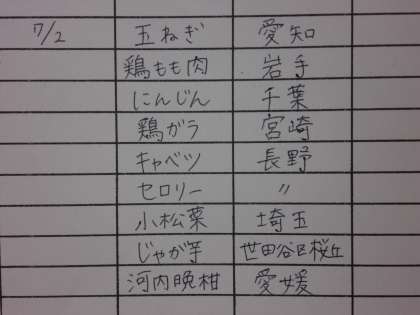 7/2 玉ねぎ 愛知
鶏もも肉 岩手
にんじん 千葉
鶏ガラ 宮崎
キャベツ 長野
セロリー 〃
小松菜 埼玉
じゃが芋 世田谷区桜丘
河内晩柑 愛媛